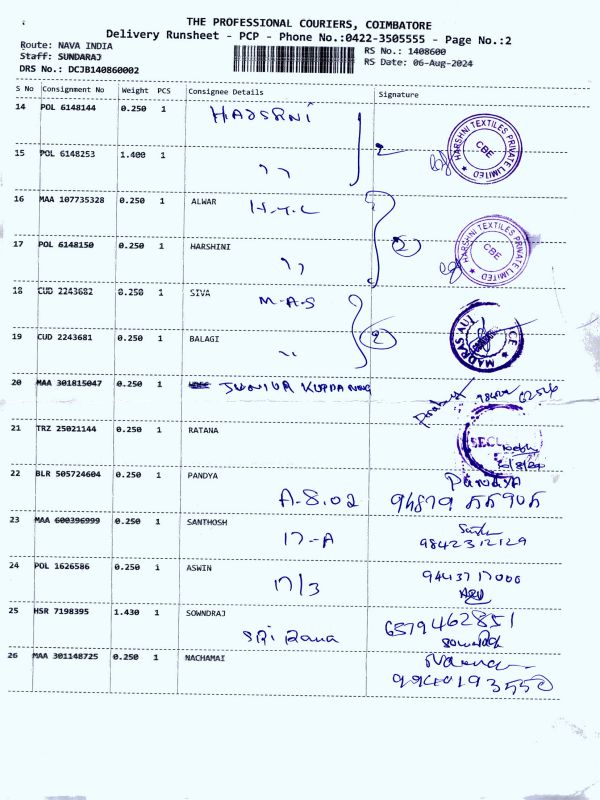 THE PROFESSIONAL COURIERS, COIMBATORE
Delivery Runsheet - PCP - Phone No.:0422-3505555 - Page No.:2
Route: NAVA INDIA
Staff: SUNDARAJ
DRS No.: DCJB140860002
RS No.: 1408600
RS Date: 06-Aug-2024
S No Consignment No Weight PCS Consignee Details Signature
14 POL 6148144 0.250 1 HARSRNI
HARSHNI TEXTILES PRIVATE LIMITED CBE
15 POL 6148253 1.400 1
" 2
16 MAA 107735328 0.250 1 ALWAR
H.T.L
17 POL 6148150 0.250 1 HARSHINI
" 2
HARSHNI TEXTILES PRIVATE LIMITED CBE
18 CUD 2243682 0.250 1 SIVA
M.A.S
19 CUD 2243681 0.250 1 BALAGI
" 2
MADRAS
20 MAA 301815047 0.250 1
21 TRZ 25021144 0.250 1 RATANA
22 BLR 505724604 0.250 1 PANDYA
A-8.02
Pandya
23 MAA 600396999 0.250 1 SANTHOSH
17-A
9842312129
24 POL 1626586 0.250 1 ASWIN
17/3
9443717000
25 HSR 7198395 1.430 1 SOWNDRAJ
SRi Rama
6579462851
26 MAA 301148725 0.250 1 NACHAMAI
9940193550